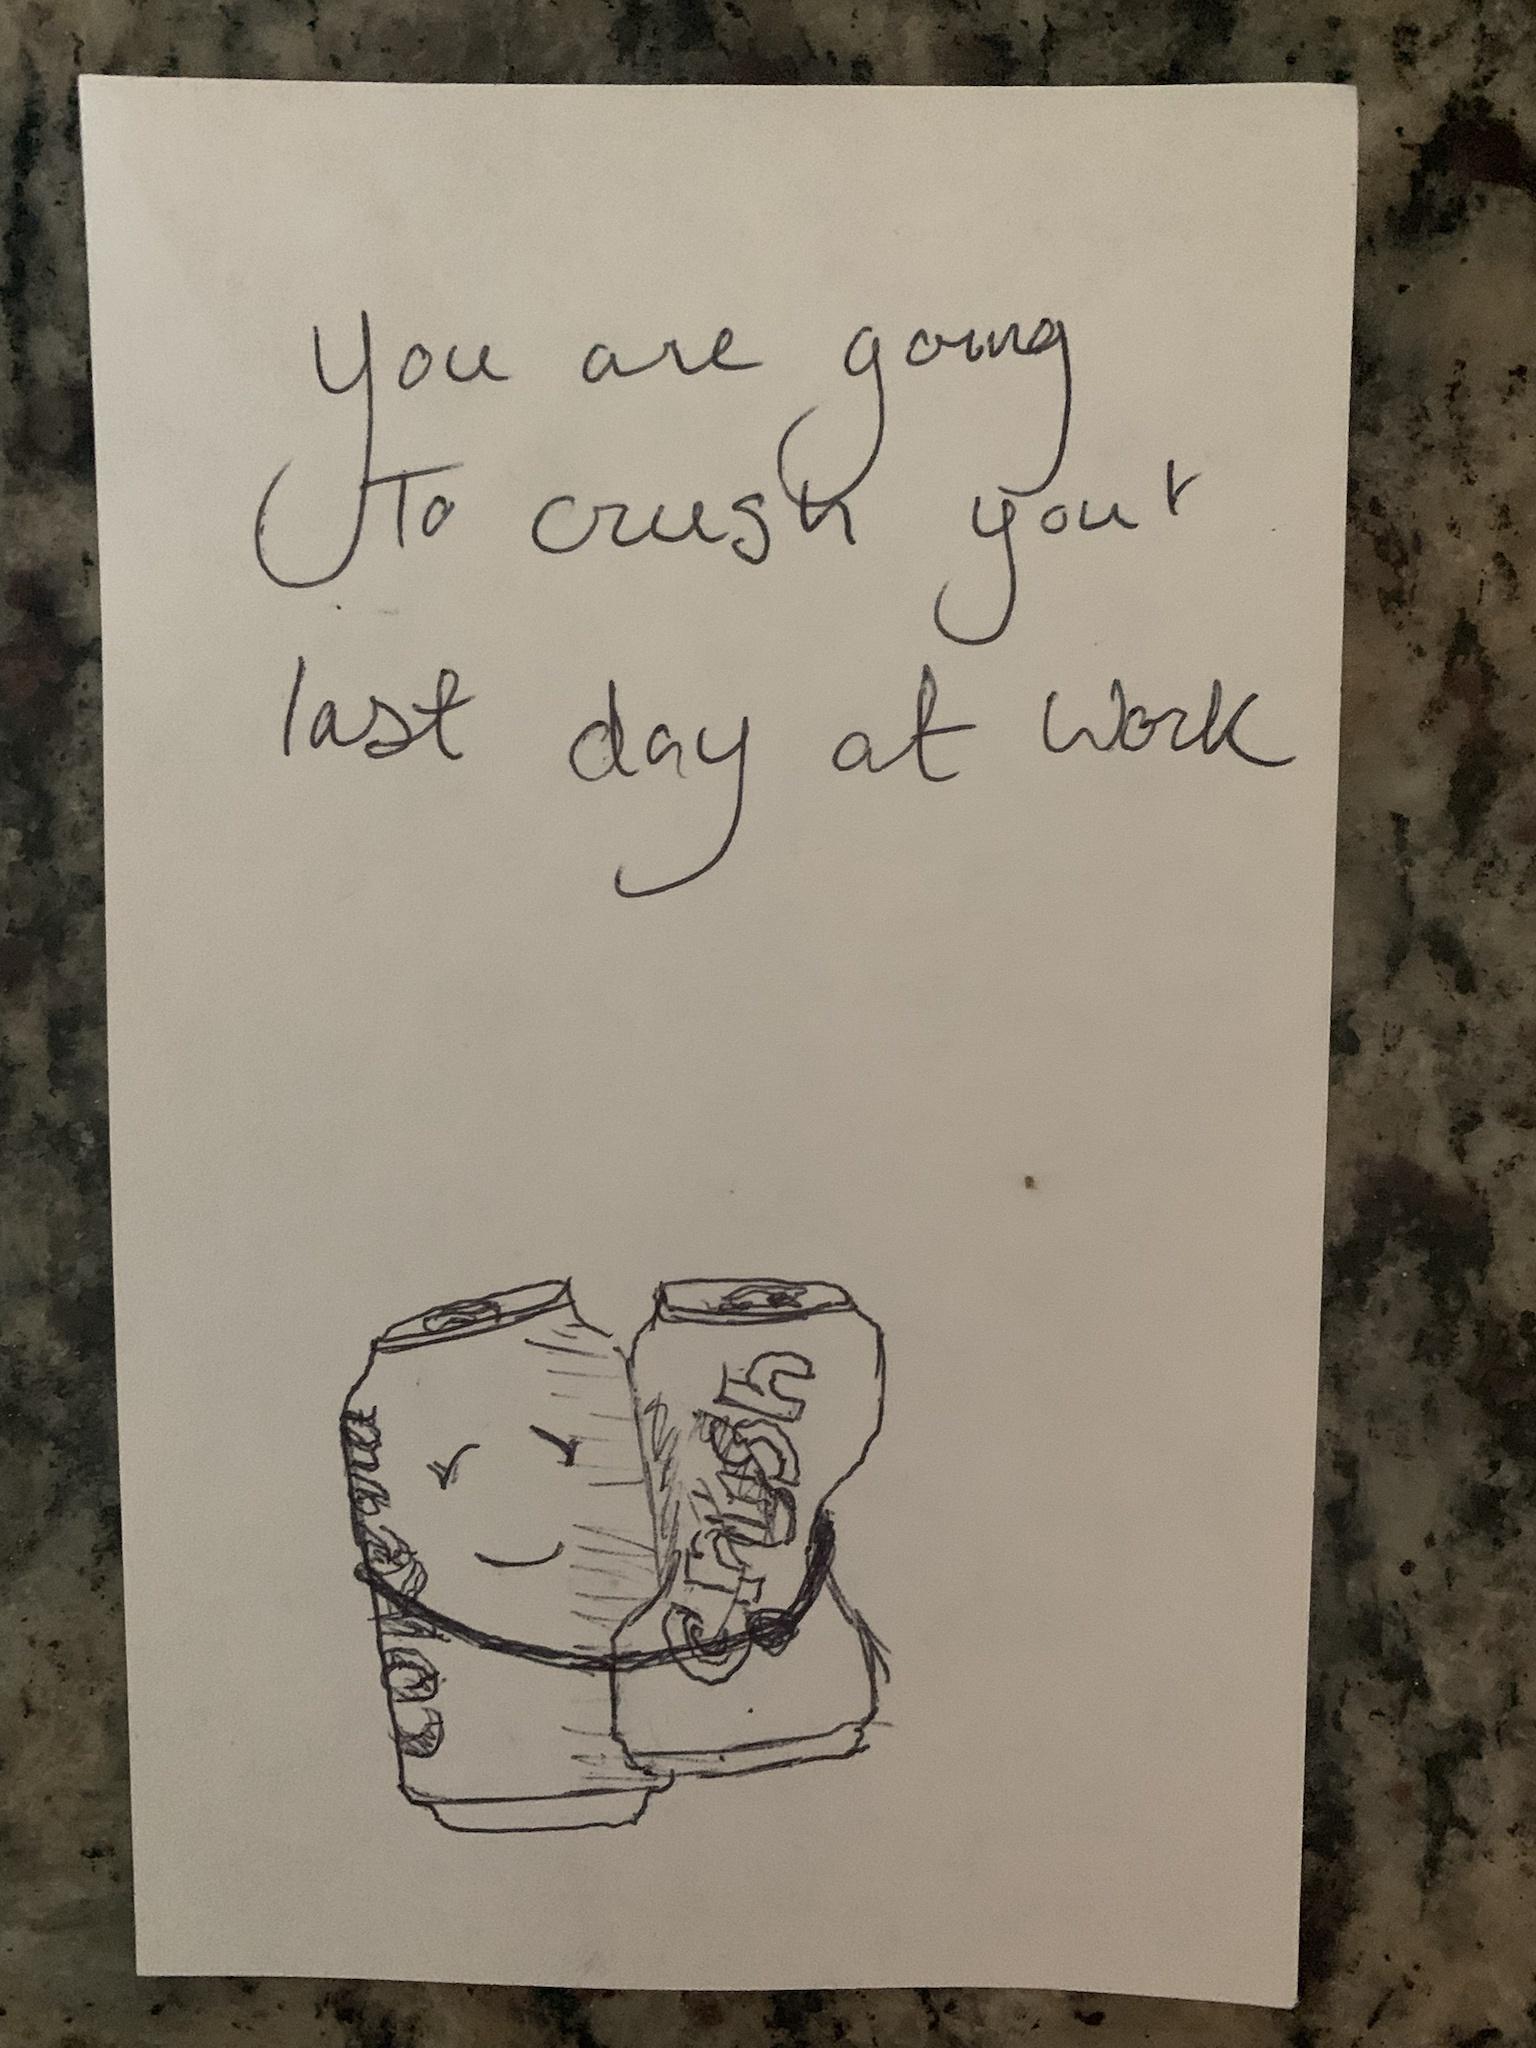 You are going
To crush your
last day at work
Crush